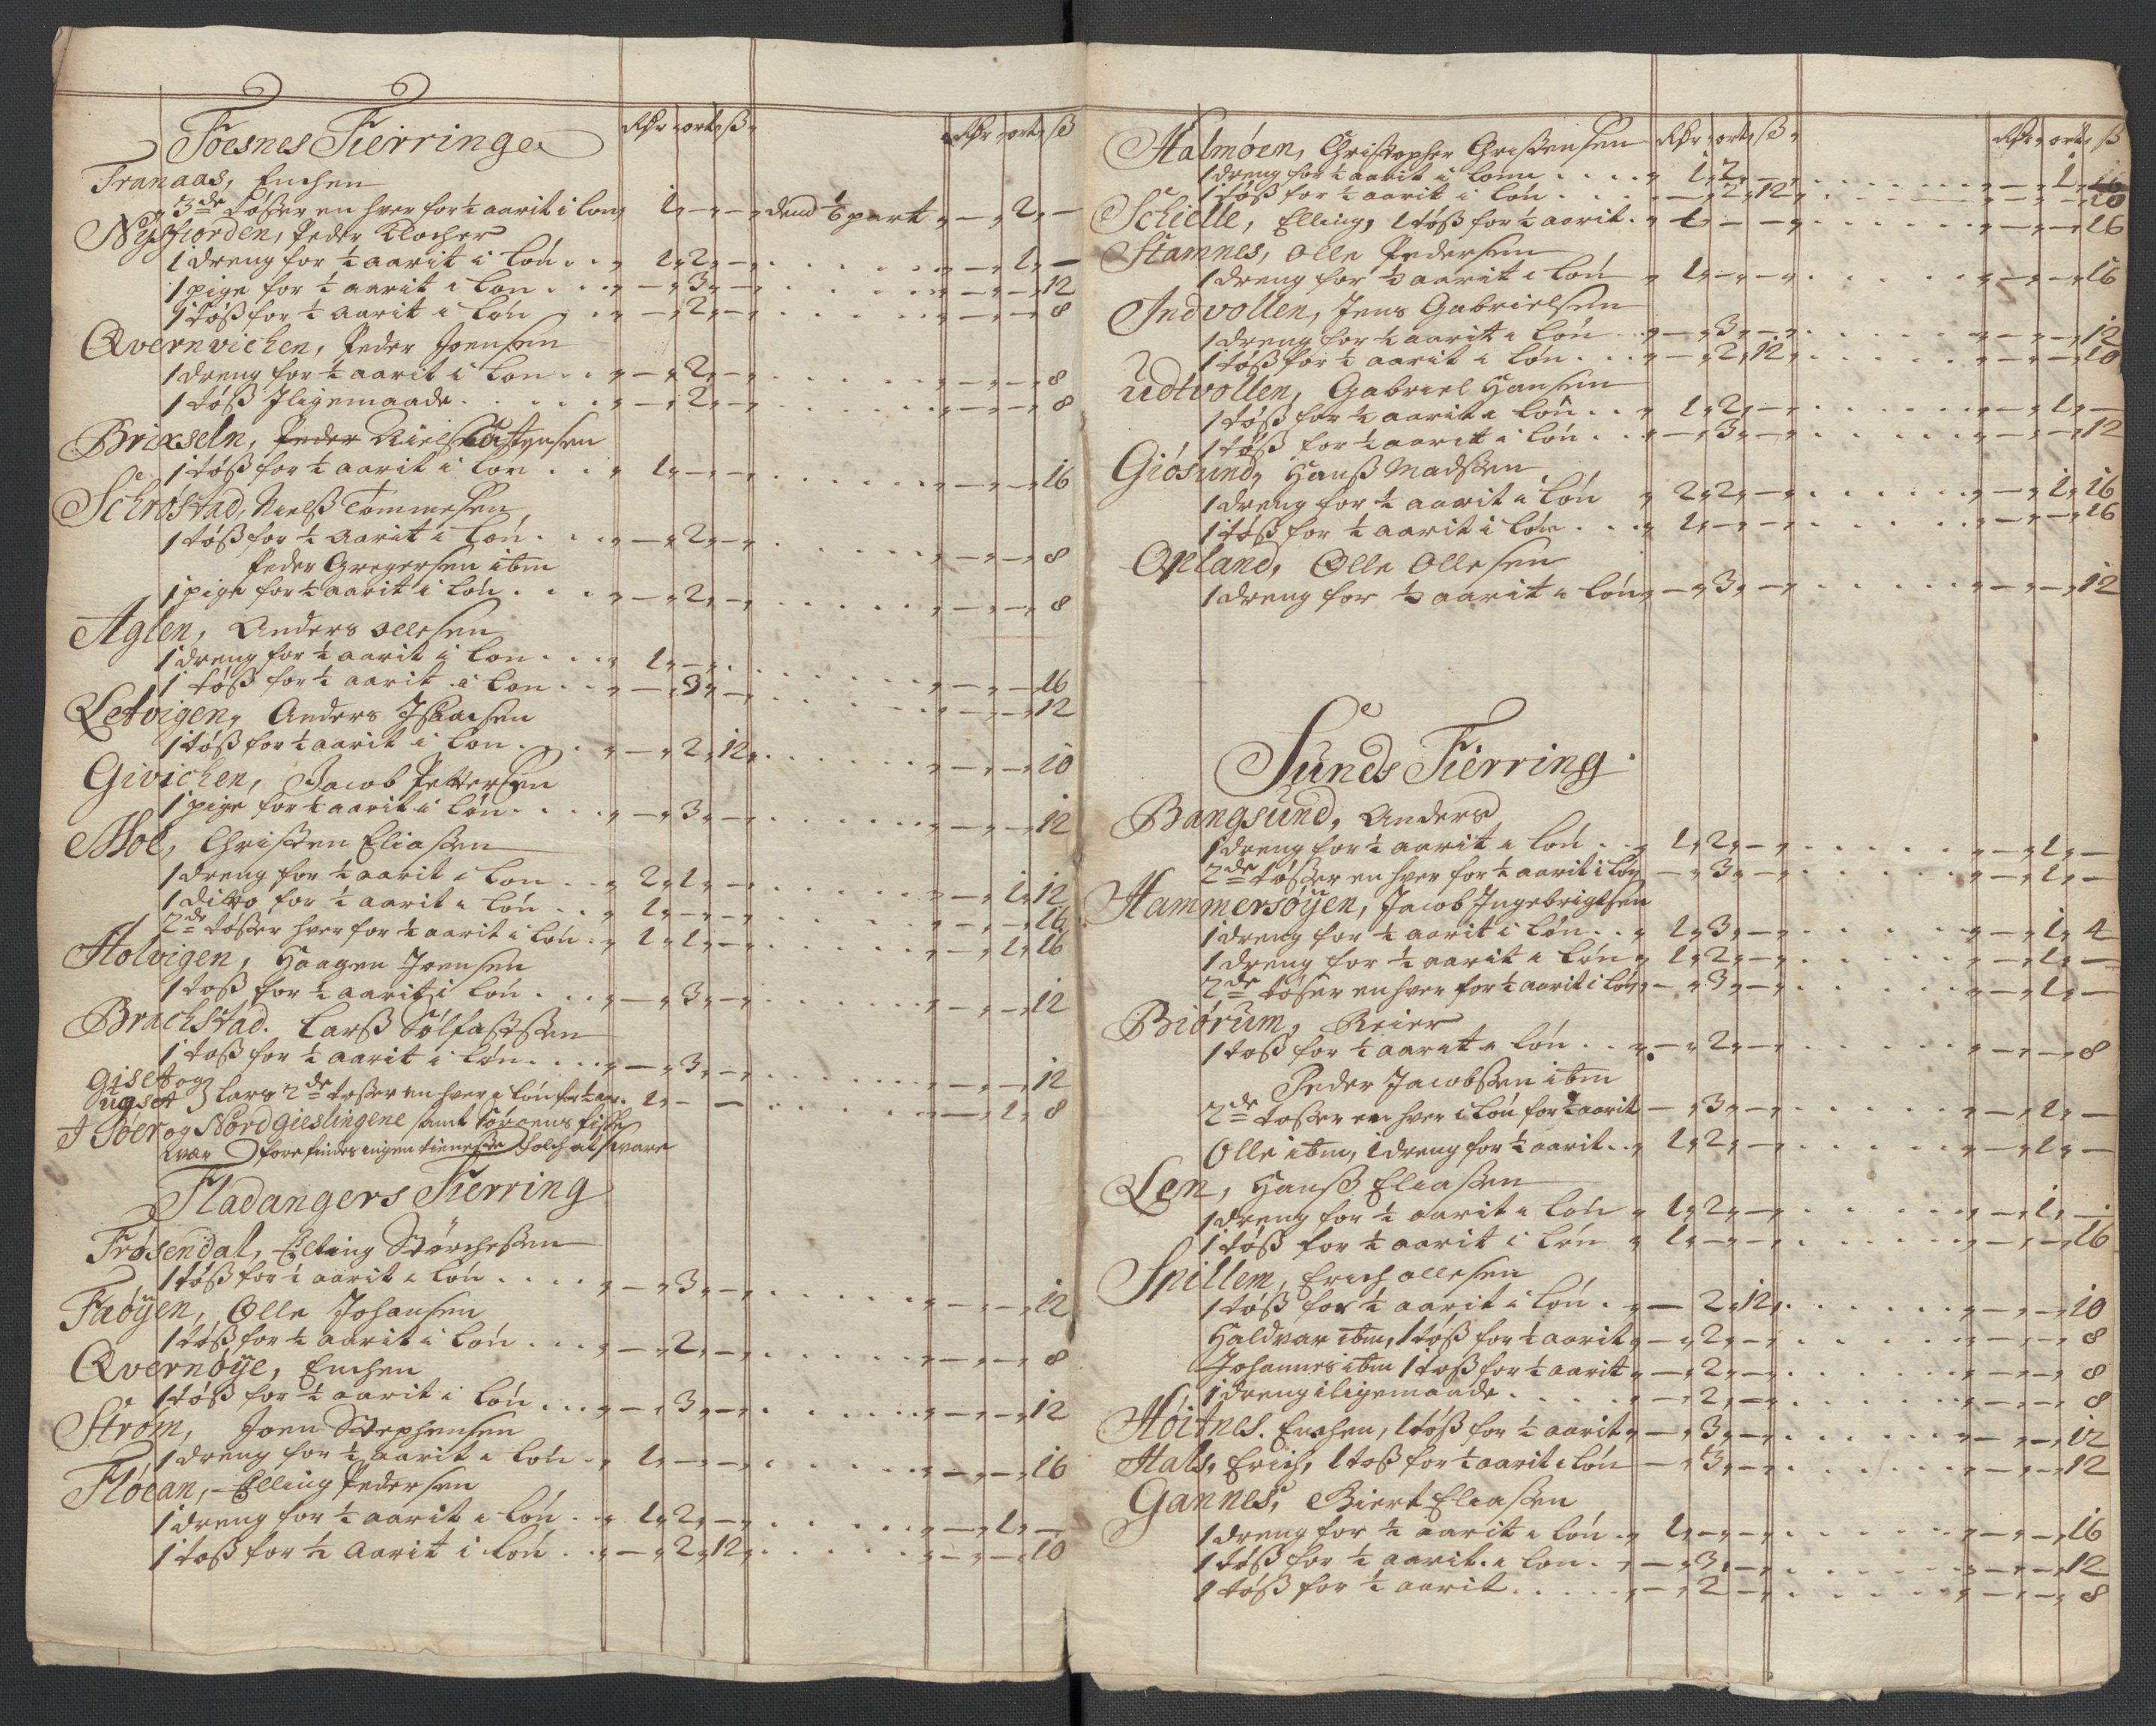 Foesnes Fierringe Rdr ort ß Rdr ort ß
Tranaas, Enchen
3de tøsser en hver for ½ aarit i løn 1 " – " – dend 1/6 part " – " 2 " –
Nysfiorden, Peder Klocher
1 dreng for ½ aarit i løn . . " 1 " 2 " – . . . . " – " 1 " –
1 pige for ½ aarit i løn . . . " – " 3 " – . . . . " – " – " 12
1 tøß for ½ aarit i løn . . " – " 2 " – . . . . " – " – " 8
Qvernvichen, Peder Joensen
1 dreng for ½ aarit i løn . . " – " 2 " – . . . . " – " – " 8
1 tøß Iligemaade . . . . . " – " 2 " – . . . . " – " – " 8
Brixseln, Peder Niels
1 tøß for ½ aarit i løn . . " 1 " – " – . . . . " – " – " 16
Schrøstad, Nielß Tommesen
1 tøß for ½ aarit i løn . . . " – " 2 " – . . . . " – " – " 8
Peder Gregersen ibm
1 pige for ½ aarit i løn . . . " – " 2 " – . . . . " – " – " 8
Aglen, Anders Ollesen
1 dreng for ½ aarit i løn . . . " 1 " – " – . . . . " – " – " 16
1 tøß for ½ aarit i løn . . " – " 3 " – . . . . " – " – " 12
Letvigen, Anders Isaacsen
1 tøß for ½ aarit i løn . . . " – " 2 " 12 . . . . " – " – " 10
Givichen, Jacob Pettersen
1 pige for ½ aarit i løn . . . . " – " 3 " – . . . . " – " – " 12
Moe, Christen Eliassen
1 dreng for ½ aarit i løn . . " 2 " 1 " – . . . . " – " 1 " 12
1 ditto for ½ aarit i løn . . " 1 " – " – . . . . " – " – " 16
2de tøsser hver for ½ aarit i løn . " 1 " 1 " – . . . . " – " 1 " 16
Holvigen, Haagen Joensen
1 toß for ½ aarit i løn . . . " – " 3 " – . . . . " – " – " 12
Brachstad. Larß Solfastssen
1 toß for ½ aarit i løn . . . . " – " 3 " – . . . . " – " – " 12
Giset og
Ugset } Lars 2de tosser en hver i løn for ½ aar . 1 " – – . . . . " – " 1 " 8
I Føer og Nord Gieslingene samt Sørgens fiske
wær forefindes ingen tieneste Folch at svare
Fladangers Fierring
Frøsendal, Elling Størchessen
1 tøß for ½ aarit i løn . . . . " – " 3 " – . . . . " – " – " 12
Faøyen, Olle Johansen
1 tøß for ½ aarit i løn . . . " – " 2 " – . . . . " – " – " 8
Qvernøye, Enchen
1 tøß for ½ aarit i løn . . . " – " 3 " – . . . . " – " – " 12
Strøm, Joen Stephensen
1 dreng for ½ aarit i løn . " 1 " – " – . . . . " – " – " 16
Fløean, Elling Pedersen
1 dreng for ½ aarit i løn . " 1 " 2 " – . . . . " – " 1 " –
1 toß for ½ aarit i løn . . " – " 2 " 12 . . . . " – " – " 10
Halmøen, Christopher Christensen Rdr ort ß Rdr ort ß
1 dreng for ½ aarit i lønn . . . " 1 " 2 " – . . . . " – " 1 "
1 tøß for ½ aarit i løn . . . . – " 2 " 12 . . . . " – " – " 10
Schielle, Elling, 1 tøß for ½ aarit . " 1 – – . . . . " – " – " 16
Stamnes, Olle Pedersen
1 dreng for ½ aarit i løn " 1 " – " – . . . . " – " – " 16
Indvollen, Jens Gabrielsen
1 dreng for ½ aarit i løn . . " – " 3 " – . . . . " – " – " 12
1 tøß for ½ aarit i løn . . . " – " 2 " 12 . . . . " – " – " 10
Udtvollen, Gabriel Hansen
1 tøß for ½ aarit i løn . . " 1 " 2 " – . . . . " – " 1 " –
1 tøß for ½ aarit i løn . . " – " 3 " – . . . . " – " – " 12
Giøsund, Hanß Madssen
1 dreng for ½ aarit i løn " 2 " 2 " – . . . . " – " 1 " 16
1 tøß for ½ aarit i løn . . . " 1 " – " – . . . . " – " – " 16
Opland, Olle Ollesen
1 dreng for ½ aarit i løn " – " 3 " – . . . . " – " – " 12
Sunds Fierring
Bangsund, Anders
1 dreng for ½ aarit i løn . . " 1 " 2 " – . . . . " – " 1 " –
2de tøsser en hver for ½ aarit i løn – " 3 " – . . . . " – " 1 " –
Hammersøyen, Jacob Ingebrigtsen
1 dreng for ½ aarit i løn . . " 1 " 3 " – . . . . " – " 1 " 4
1 dreng for ½ aarit i løn " 1 " 2 " – . . . . " – " 1 " –
2de tøsser en hver for ½ aarit i løn " – " 3 " – . . . . " – " 1 " –
Biørum, Reier
1 toß for ½ aarit i løn . . " – " 2 " – . . . . " – " – " 8
Peder Jacobssen ibm
2de tosser en hver i løn for ½ aarit – " 3 " – . . . . " – " 1 " –
Olle ibm, 1 dreng for ½ aarit . . " 1 " 2 " – . . . . " – " 1 " –
Len, Hanß Eliassen
1 dreng for ½ aarit i løn " 1 " 2 " – . . . . " – " 1 " –
1 tøß for ½ aarit i løn " 1 " – " – . . . . " – " – " 16
Spillem, Erich Ollesen
1 tøß for ½ aarit i løn . " – 2 " 12 . . . . " – " – " 10
Haldvar ibm, 1 tøß for ½ aarit " – " 2 " – . . . . " – " – " 8
Johannes ibm 1 toß for ½ aarit " – " 2 " – . . . . " – " – " 8
1 dreng iligemaade . . . . " – " 2 " – . . . . " – " – " 8
Høitnes. Enchen, 1 tøß for ½ aarit " – " 3 " – . . . . " – " – " 12
Hals, Erich, 1 toß for ½ aarit i løn – " 3 " – . . . . " – " – " 12
Gannes, Biert Eliassen
1 dreng for ½ aarit i løn . " 1 " – " – . . . . " – " – " 16
1 tøß for ½ aarit i løn . " – " 3 " – . . . . " – " – " 12
1 tøß for ½ aarit . . . . . " – " 2 – . . . . " – " – " 8